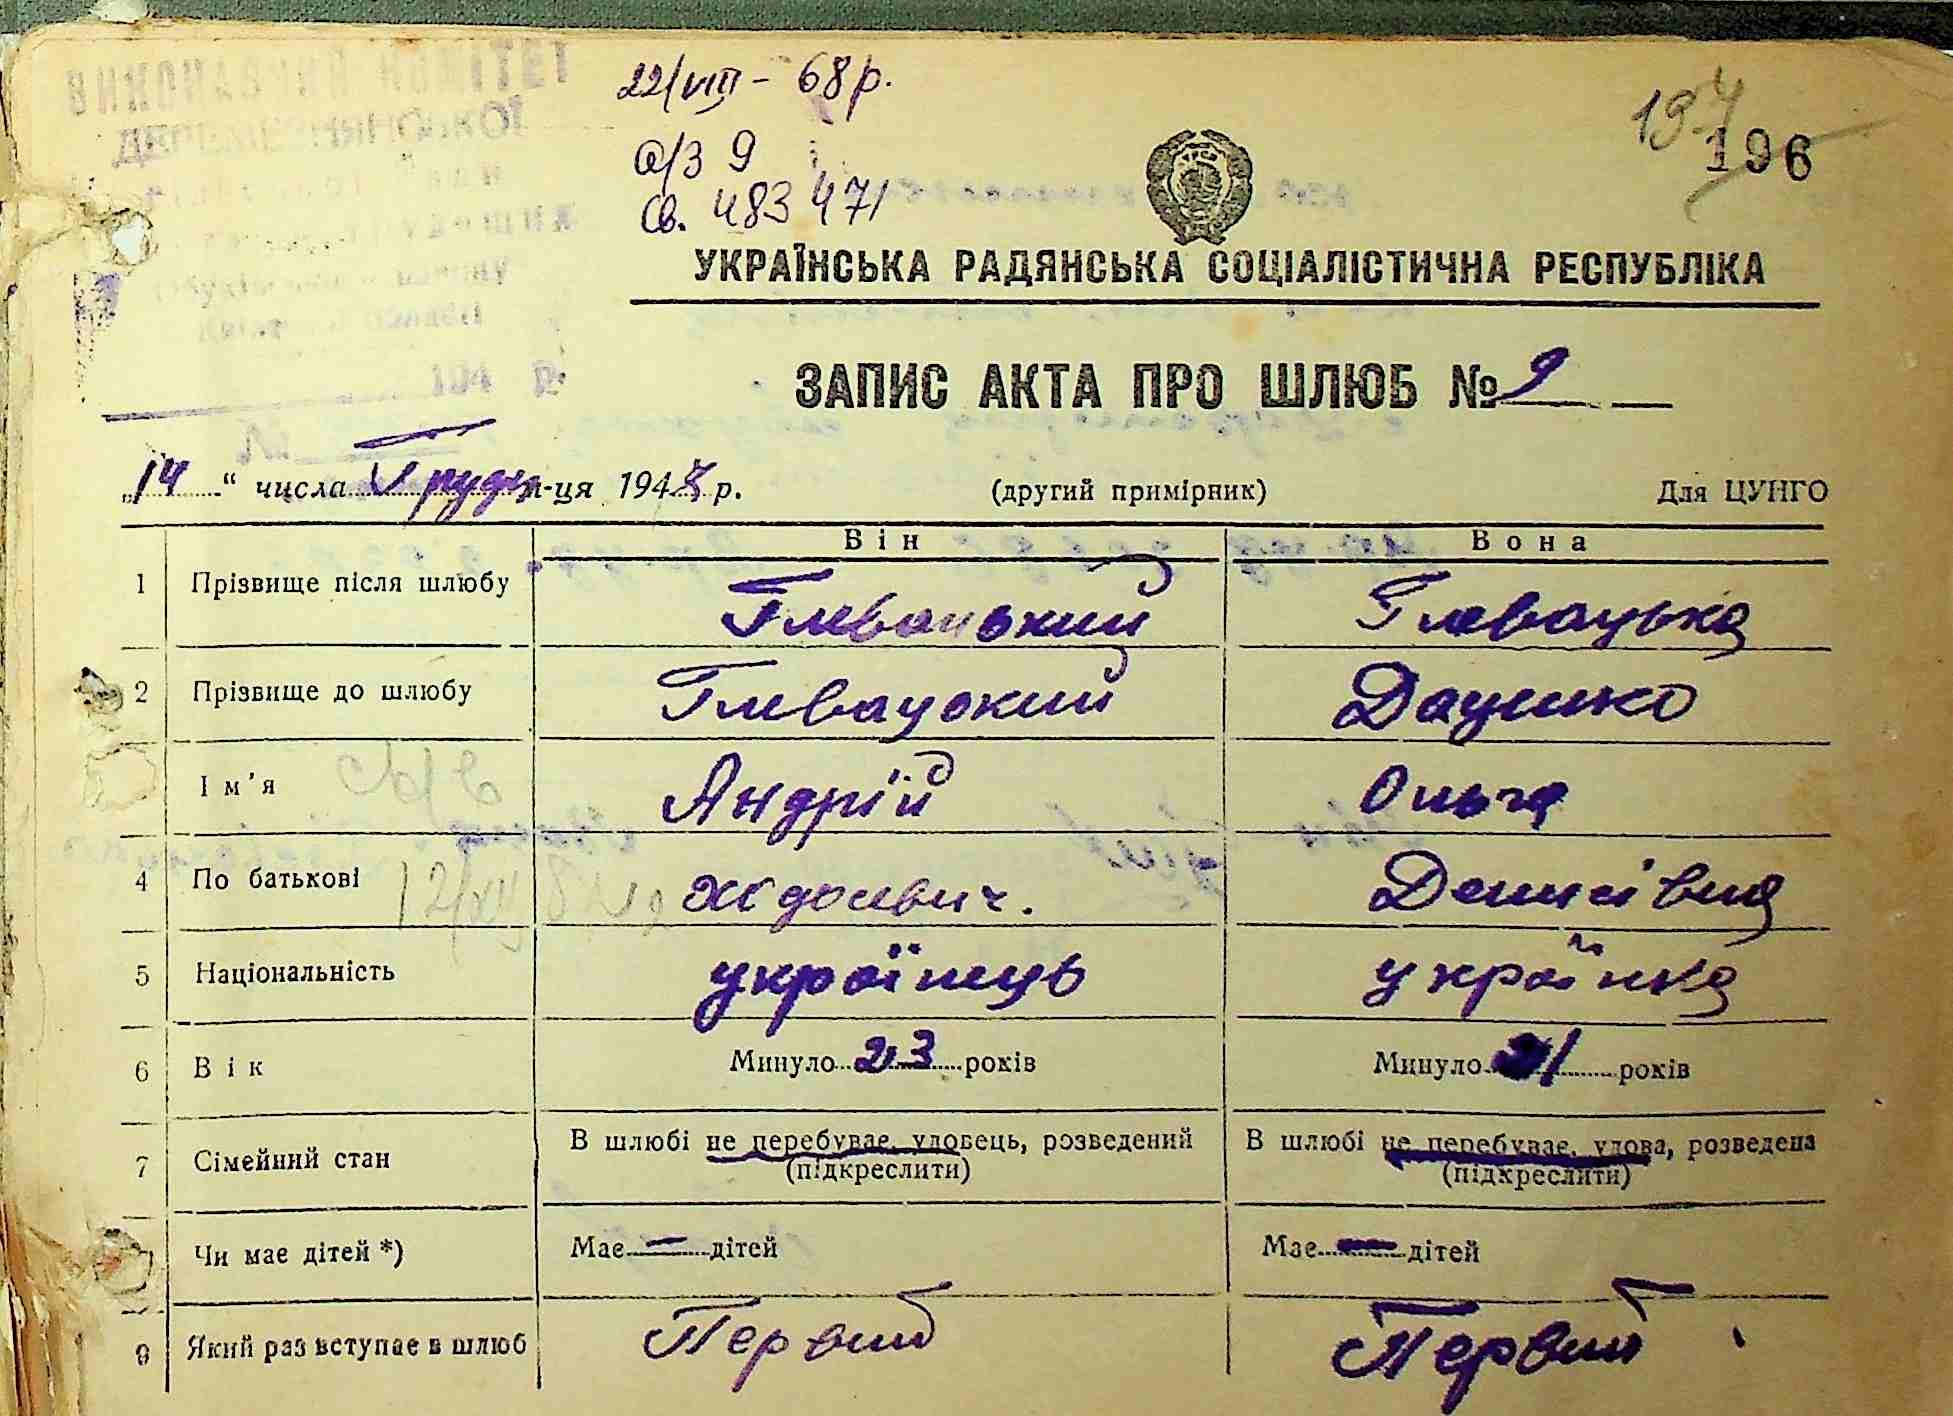 ВИКОНАВЧИЙ КОМІТЕТ
22/VIII - 68 р.
а/з 9
св. 483471
194
196
УКРАЇНСЬКА РАДЯНСЬКА СОЦІАЛІСТИЧНА РЕСПУБЛІКА
ЗАПИС АКТА ПРО ШЛЮБ № 9
„14“ числа Грудня м-ця 194 р. (другий примірник) Для ЦУНГО
Він Вона
1 Прізвище після шлюбу Глевацький Глевацька
2 Прізвище до шлюбу Глевацький Даценко
Ім'я Андрій Ольга
4 По батькові Денисівна
5 Національність українець українка
6 Вік Минуло 23 років Минуло 21 років
7 Сімейний стан В шлюбі не перебуває, удовець, розведений (підкреслити) В шлюбі не перебуває, удова, розведена (підкреслити)
Чи має дітей *) Має — дітей Має — дітей
9 Який раз вступає в шлюб Первий Первий